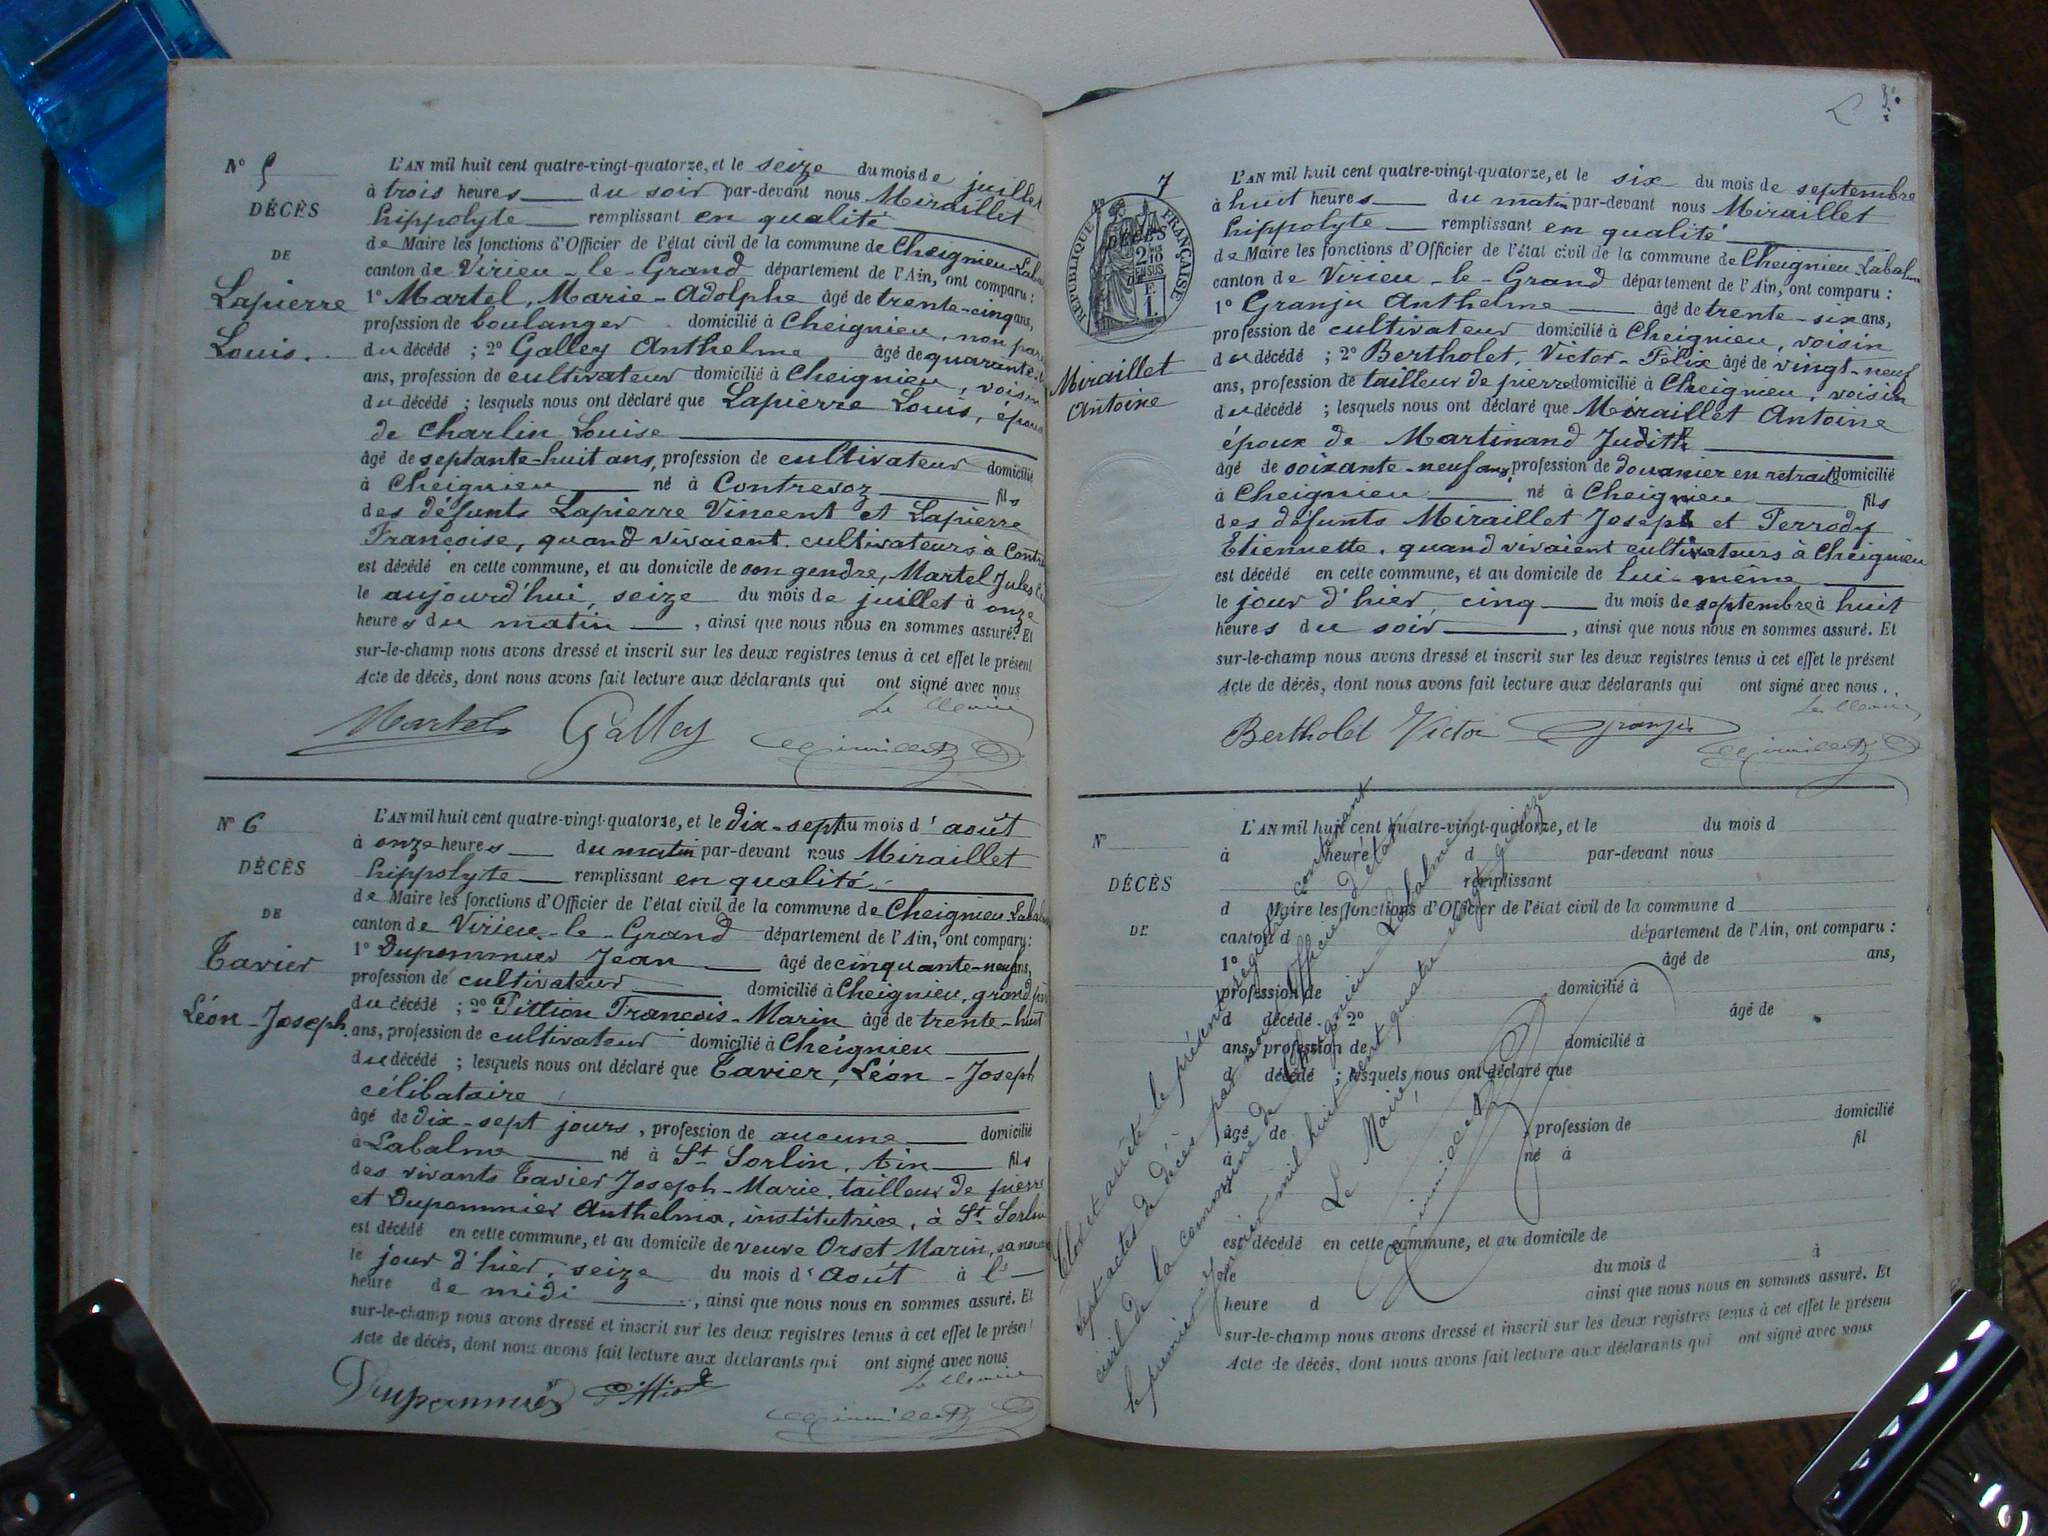 N° 5
DÉCÈS
DE
Lapierre
Louis.
L'AN mil huit cent quatre-vingt-quatorze, et le seize du mois de juillet
à trois heures du soir par-devant nous Miraillet
hippolyte remplissant en qualité
de Maire les fonctions d'Officier de l'état civil de la commune de Cheignieu-Labal
canton de Virieu-le-Grand département de l'Ain, ont comparu :
1° Martel, Marie-Adolphe âgé de trente-cinq ans,
profession de boulanger domicilié à Cheignieu, non
du décédé ; 2° Galley Anthelme âgé de quarante
ans, profession de cultivateur domicilié à Cheignieu, voisin
du décédé ; lesquels nous ont déclaré que Lapierre Louis, époux
de Charlin Louise
âgé de septante-huit ans, profession de cultivateur domicilié
à Cheignieu né à Contrevoz fils
des défunts Lapierre Vincent et Lapierre
Françoise, quand vivaient cultivateurs à Contre
est décédé en cette commune, et au domicile de son gendre, Martel Jules
le aujourd'hui, seize du mois de juillet à onze
heures du matin , ainsi que nous nous en sommes assuré. Et
sur-le-champ nous avons dressé et inscrit sur les deux registres tenus à cet effet le présent
Acte de décès, dont nous avons fait lecture aux déclarants qui ont signé avec nous
Le Maire
Martel Galley Miraillet
N° 6
DÉCÈS
DE
Tavier
Léon-Joseph.
L'AN mil huit cent quatre-vingt-quatorze, et le dix-sept du mois d'août
à onze heures du matin par-devant nous Miraillet
hippolyte remplissant en qualité
de Maire les fonctions d'Officier de l'état civil de la commune de Cheignieu Labal
canton de Virieu-le-Grand département de l'Ain, ont comparu :
1° Dupommier Jean âgé de cinquante-neuf ans,
profession de cultivateur domicilié à Cheignieu, grand
du décédé ; 2° Pittion François-Marin âgé de trente-huit
ans, profession de cultivateur domicilié à Cheignieu
du décédé ; lesquels nous ont déclaré que Tavier, Léon-Joseph
célibataire
âgé de dix-sept jours, profession de aucune domicilié
à Labalme né à St Sorlin, Ain fils
des vivants Tavier Joseph-Marie, tailleur de pierre
et Dupommier Anthelma, institutrice, à St Sorlin
est décédé en cette commune, et au domicile de veuve Orset Marin, sa
le jour d'hier, seize du mois d'août à l'
heure de midi , ainsi que nous nous en sommes assuré. Et
sur-le-champ nous avons dressé et inscrit sur les deux registres tenus à cet effet le présent
Acte de décès, dont nous avons fait lecture aux déclarants qui ont signé avec nous
Le Maire
Dupommier Pittion Miraillet
7
RÉPUBLIQUE FRANÇAISE
DÉCÈS
2/10 EN SUS
F.
1.
Miraillet
Antoine
L'AN mil huit cent quatre-vingt-quatorze, et le six du mois de septembre
à huit heures du matin par-devant nous Miraillet
hippolyte remplissant en qualité
de Maire les fonctions d'Officier de l'état civil de la commune de Cheignieu-Labalme
canton de Virieu-le-Grand département de l'Ain, ont comparu :
1° Granju Anthelme âgé de trente-six ans,
profession de cultivateur domicilié à Cheignieu, voisin
du décédé ; 2° Bertholet, Victor-Félix âgé de vingt-neuf
ans, profession de tailleur de pierre domicilié à Cheignieu, voisin
du décédé ; lesquels nous ont déclaré que Miraillet Antoine
époux de Martinand Judith
âgé de soixante-neuf ans, profession de douanier en retraite domicilié
à Cheignieu né à Cheignieu fils
des défunts Miraillet Joseph et Perrody
Etiennette, quand vivaient cultivateurs à Cheignieu
est décédé en cette commune, et au domicile de lui-même
le jour d'hier, cinq du mois de septembre à huit
heures du soir , ainsi que nous nous en sommes assuré. Et
sur-le-champ nous avons dressé et inscrit sur les deux registres tenus à cet effet le présent
Acte de décès, dont nous avons fait lecture aux déclarants qui ont signé avec nous.
Le Maire
Bertholet Victor Granju Miraillet
N°
DÉCÈS
DE
L'AN mil huit cent quatre-vingt-quatorze, et le du mois d
à heure d par-devant nous
remplissant
d Maire les fonctions d'Officier de l'état civil de la commune d
canton d département de l'Ain, ont comparu :
1° âgé de ans,
profession de domicilié à
d décédé ; 2° âgé de
ans, profession de domicilié à
d décédé ; lesquels nous ont déclaré que
âgé de , profession de domicilié
à né à fil
est décédé en cette commune, et au domicile de
le du mois d à
heure d ainsi que nous nous en sommes assuré. Et
sur-le-champ nous avons dressé et inscrit sur les deux registres tenus à cet effet le présent
Acte de décès, dont nous avons fait lecture aux déclarants qui ont signé avec nous
Clos et arrêté le présent registre contenant
sept actes de décès par nous Officier d'état
civil de la commune de Cheignieu Labalme
le premier janvier mil huit cent quatre-vingt-quinze
Le Maire,
Miraillet